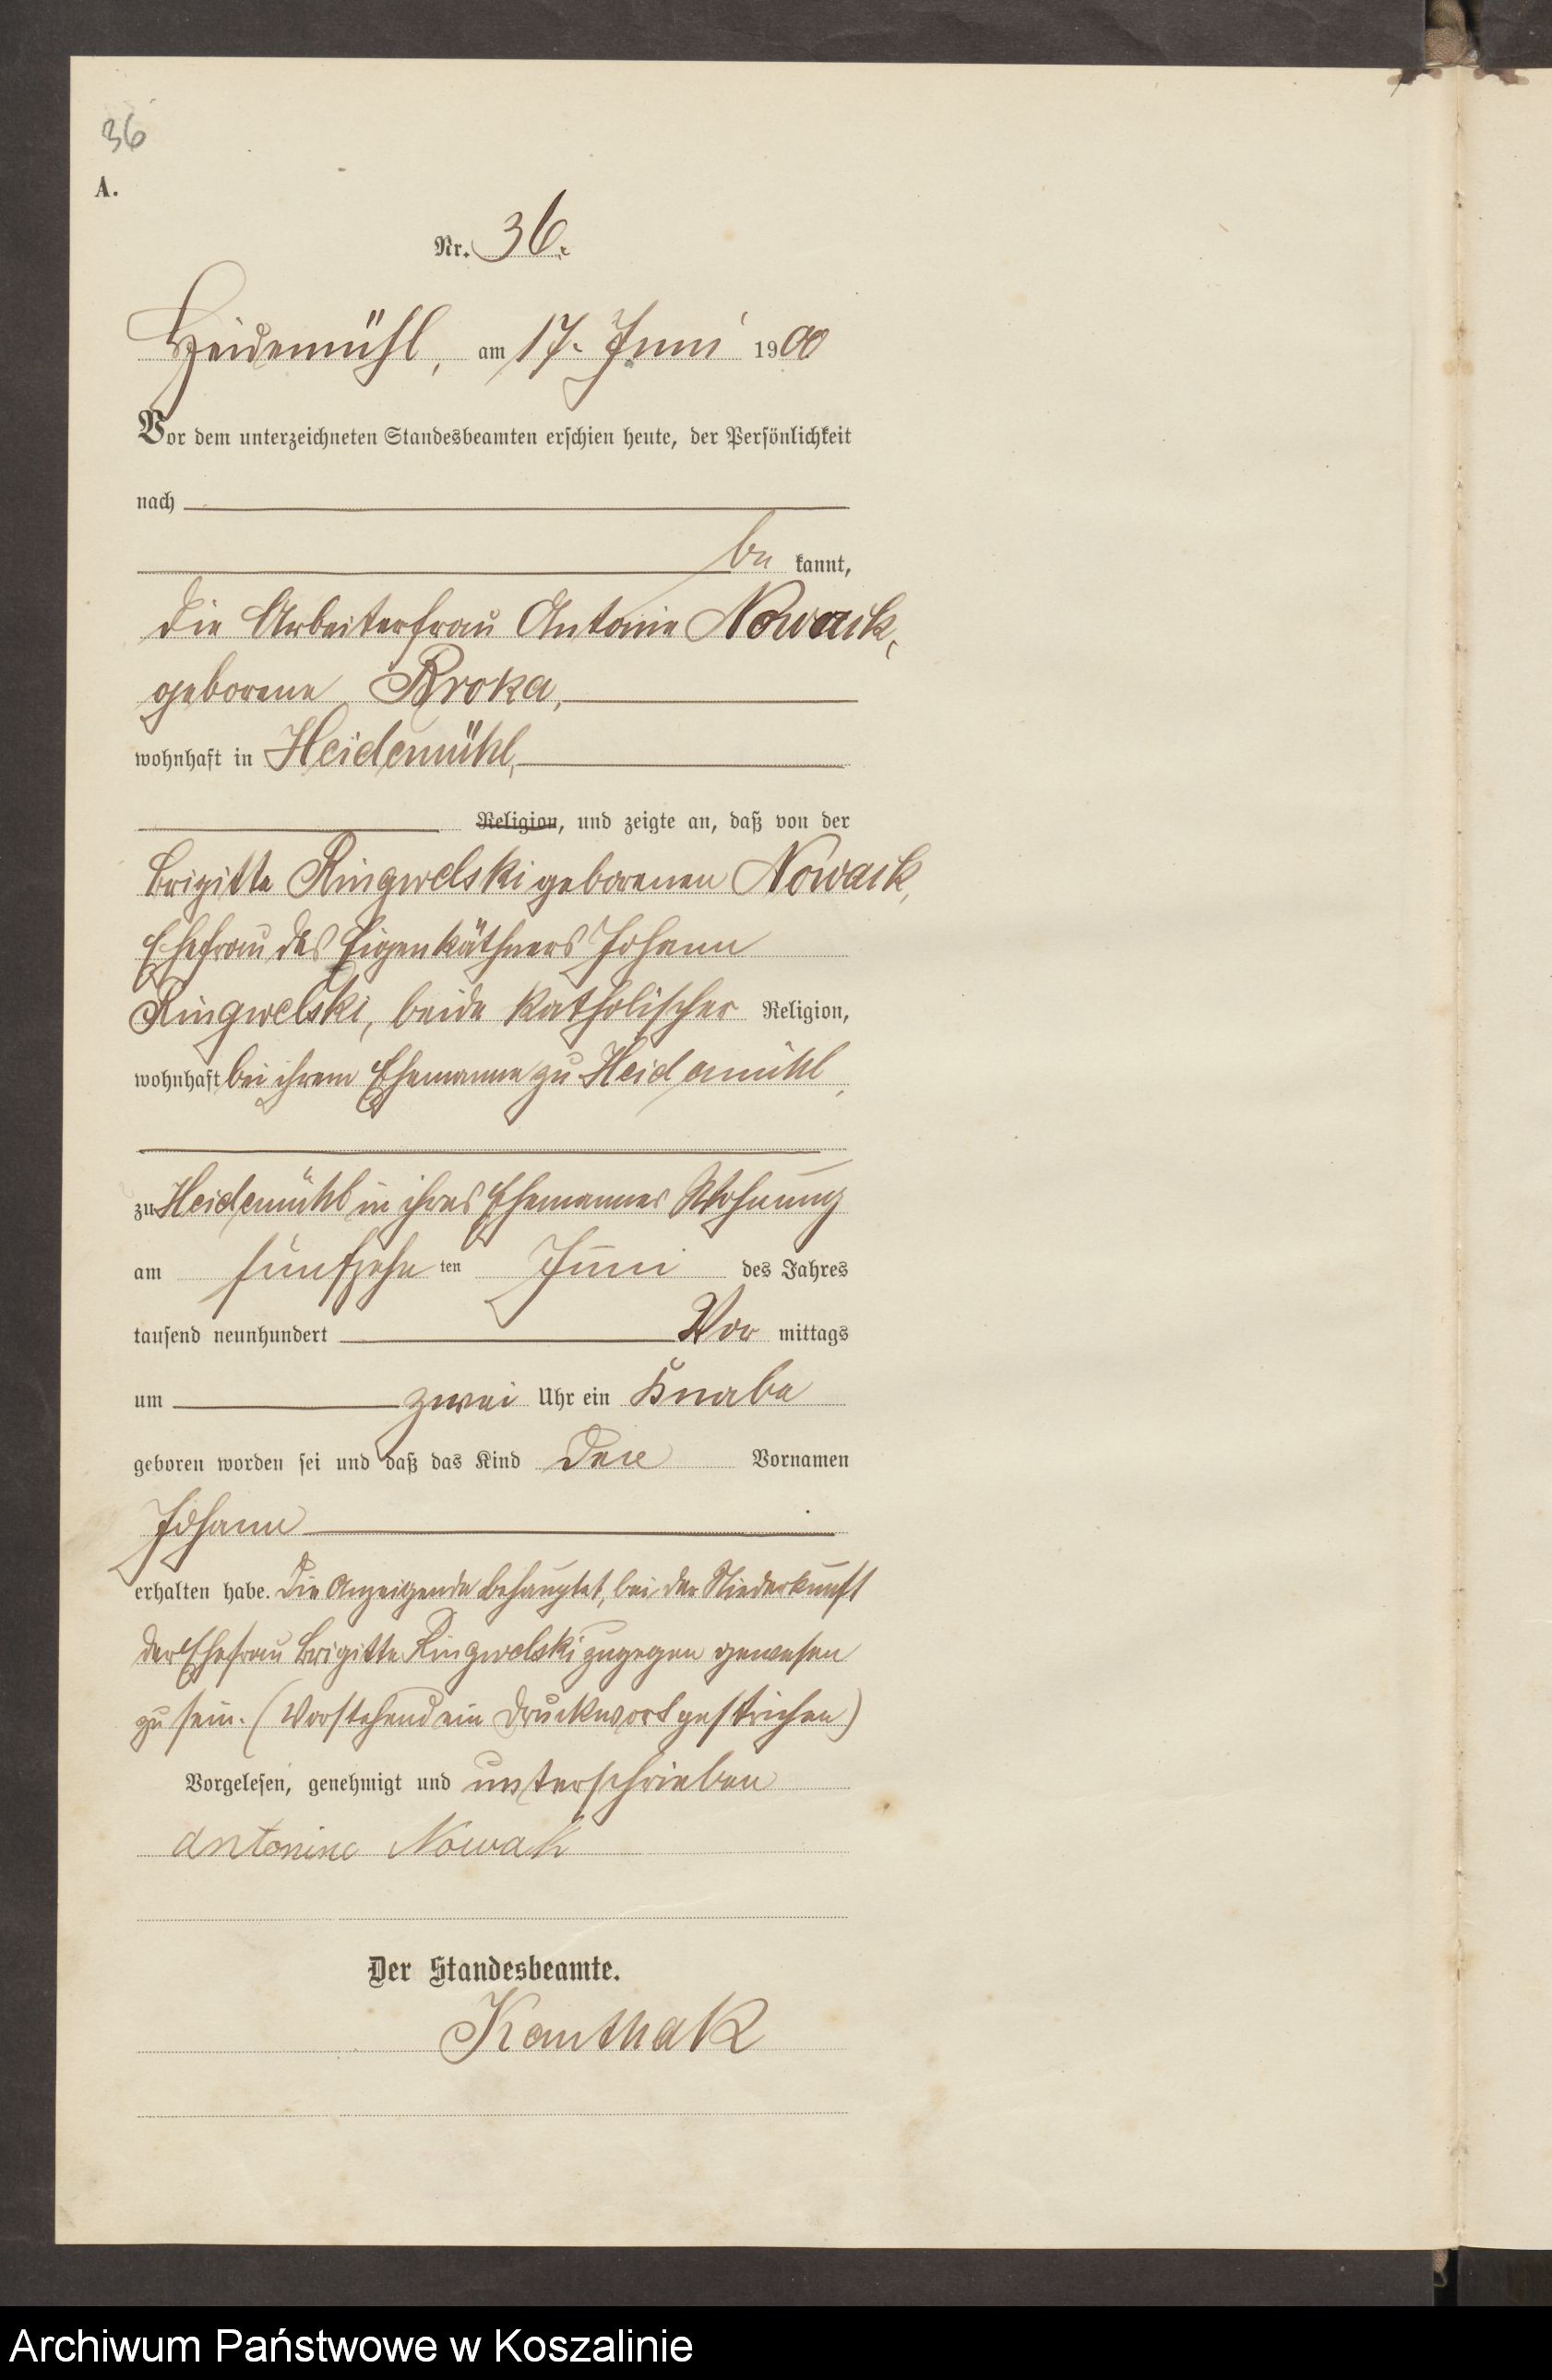 36
A.
Nr. 36.
Heidemühl, am 17. Juni 1900
Vor dem unterzeichneten Standesbeamten erschien heute, der Persönlichkeit
nach
be kannt,
die Arbeiterfrau Antonie Nowack,
geborene Broka,
wohnhaft in Heidemühl,
Religion, und zeigte an, daß von der
Brigitte Ringwelski geborenen Nowack,
Ehefrau des Eigenkäthners Johann
Ringwelski, beide katholischer Religion,
wohnhaft bei ihrem Ehemanne zu Heidemühl,
zu Heidemühl in ihres Ehemannes Wohnung
am fünfzehn ten Juni des Jahres
tausend neunhundert Vor mittags
um zwei Uhr ein Knabe
geboren worden sei und daß das Kind den Vornamen
Johann
erhalten habe. Die Anzeigende behauptet, bei der Niederkunft
der Ehefrau Brigitte Ringwelski zugegen gewesen
zu sein. (Vorstehend ein Druckwort gestrichen)
Vorgelesen, genehmigt und unterschrieben
Antonine Nowak
Der Standesbeamte.
Kanthak
Archiwum Państwowe w Koszalinie